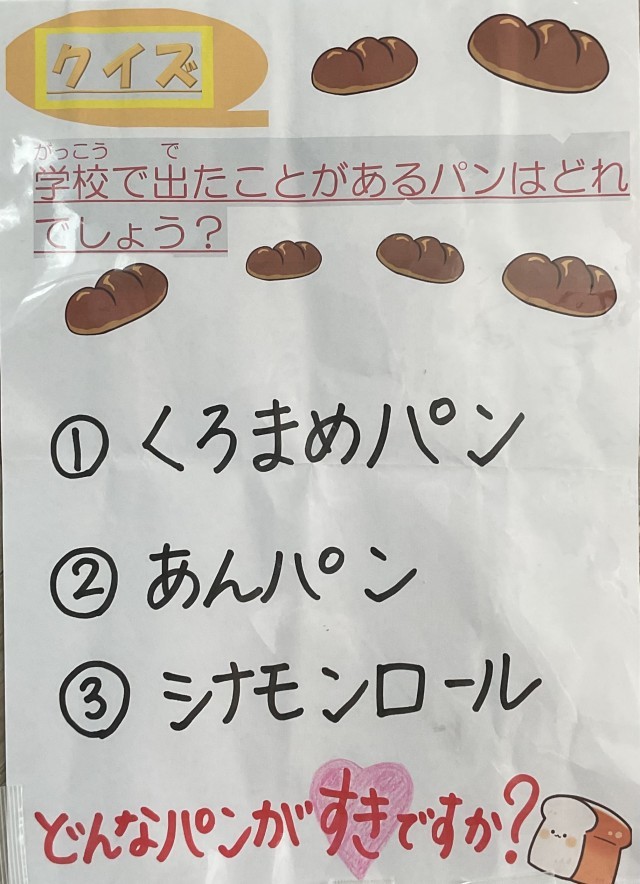 クイズ
がっこう で
学校で出たことがあるパンはどれ
でしょう？
① くろまめパン
② あんパン
③ シナモンロール
どんなパンがすきですか？